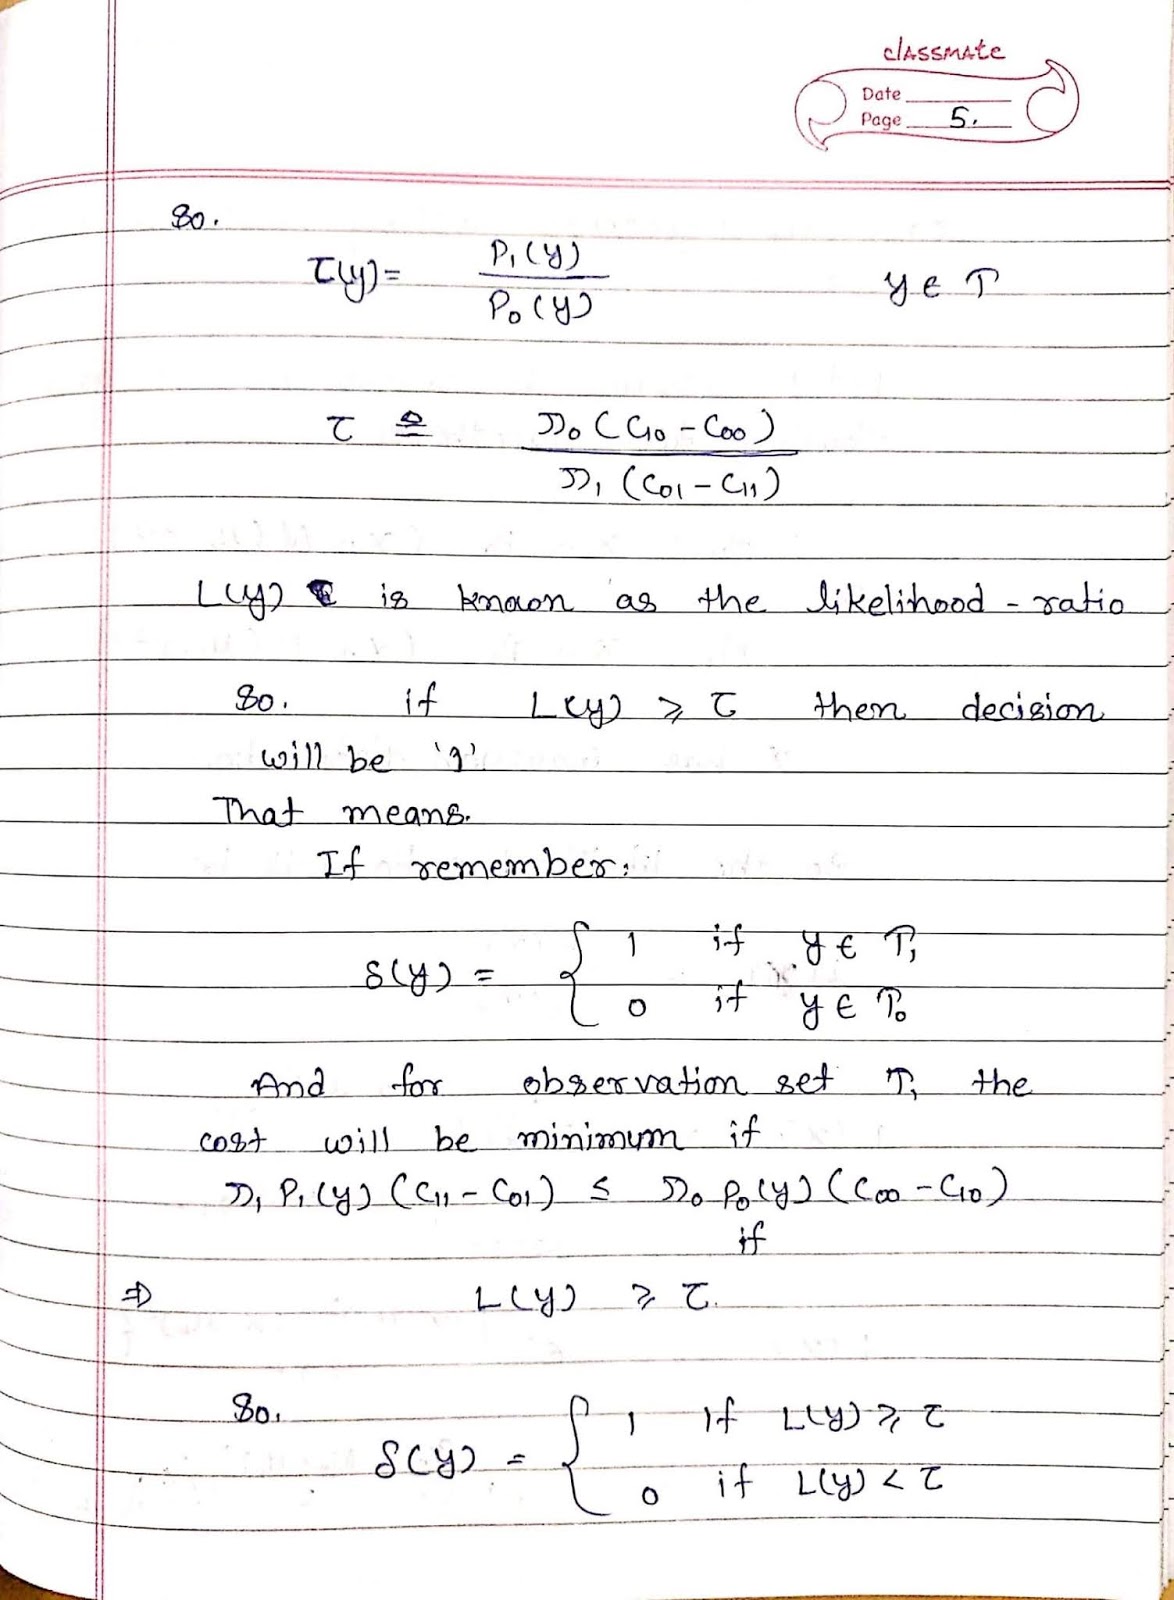 classmate
Date
Page 5.
So.
τ(y) = P₁(y) / P₀(y) y ∈ Γ
τ ≜ π₀(C₁₀ - C₀₀) / π₁(C₀₁ - C₁₁)
L(y) is known as the likelihood - ratio
So. if L(y) ≥ τ then decision
will be '1'
That means.
If remember:
δ(y) = { 1 if y ∈ Γ₁
0 if y ∈ Γ₀
And for observation set Γ₁ the
cost will be minimum if
π₁ P₁(y) (C₁₁ - C₀₁) ≤ π₀ P₀(y) (C₀₀ - C₁₀)
if
⇒ L(y) ≥ τ.
So.
δ(y) = { 1 If L(y) ≥ τ
0 if L(y) < τ